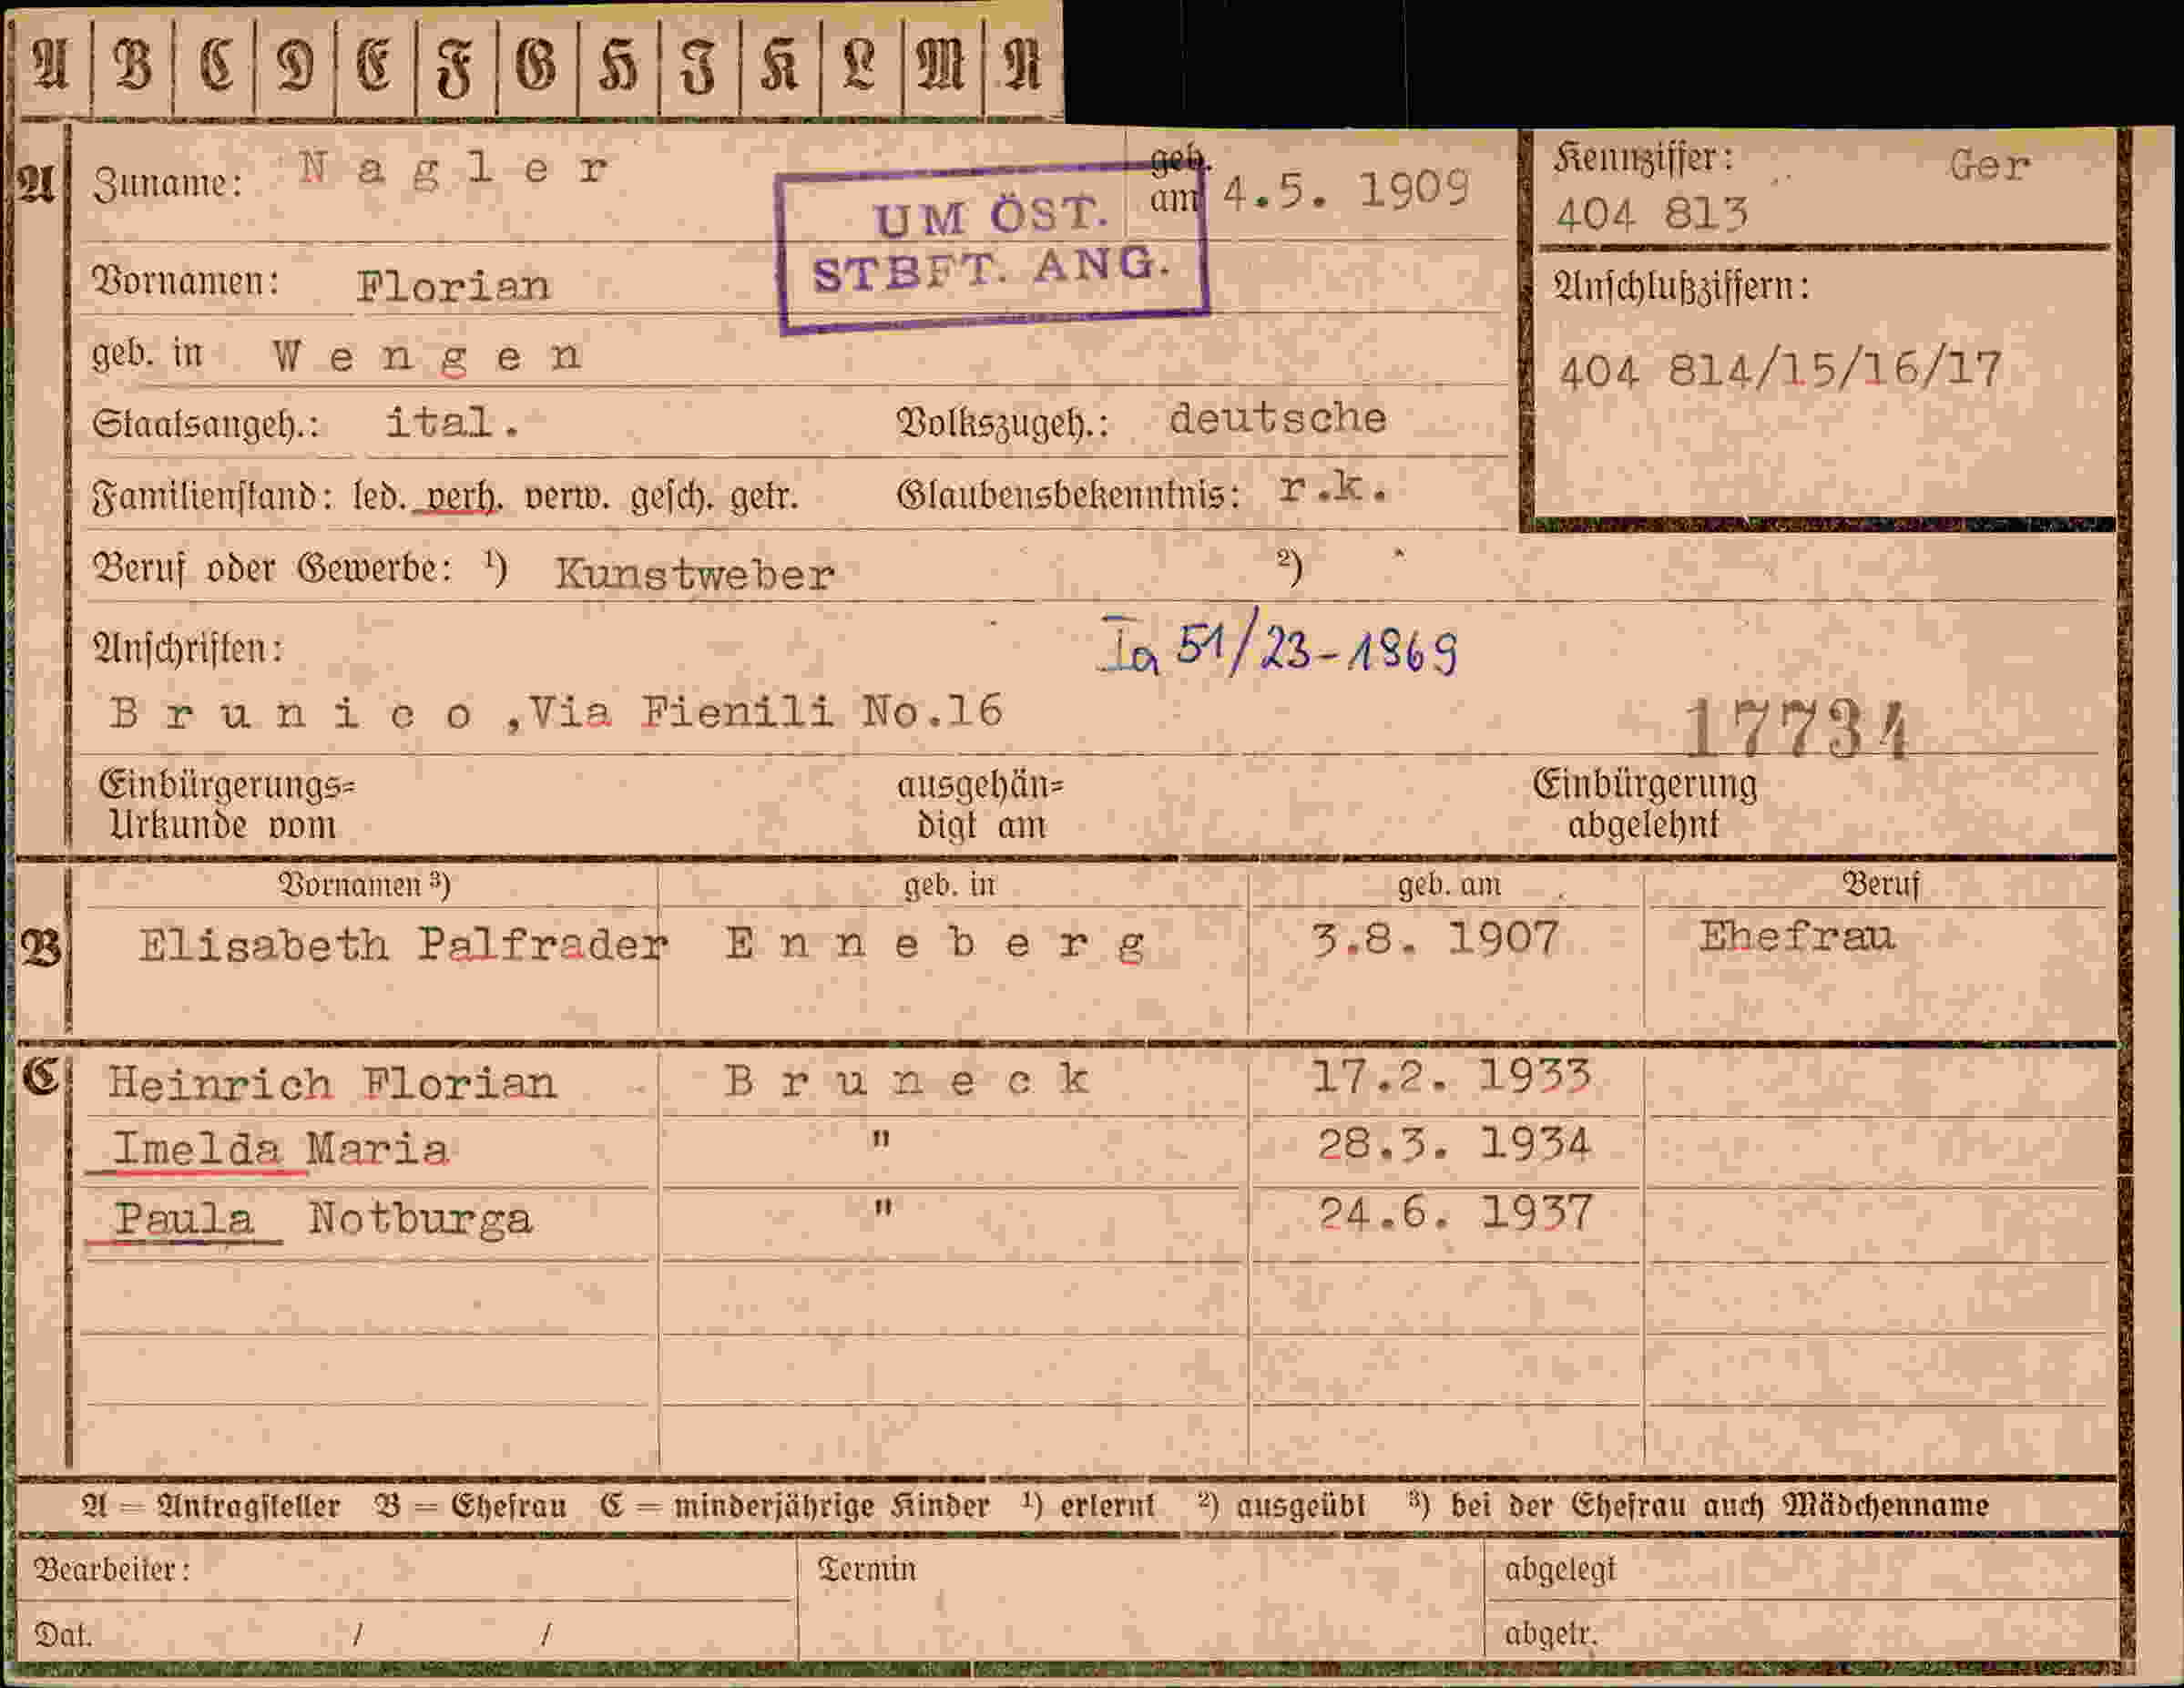 A B C D E F G H I K L M N
A Zuname: Nagler geb. am 4.5. 1909
UM ÖST.
STBFT. ANG.
Kennziffer: Ger
404 813
Vornamen: Florian
Anschlußziffern:
geb. in Wengen
404 814/15/16/17
Staatsangeh.: ital. Volkszugeh.: deutsche
Familienstand: led. verh. verw. gesch. getr. Glaubensbekenntnis: r.k.
Beruf oder Gewerbe: ¹) Kunstweber ²)
Anschriften: Ia 51/23-1969
Brunico, Via Fienili No.16
17734
Einbürgerungs= Urkunde vom ausgehän= digt am Einbürgerung abgelehnt
Vornamen ³) geb. in geb. am Beruf
B Elisabeth Palfrader Enneberg 3.8. 1907 Ehefrau
C Heinrich Florian Bruneck 17.2. 1933
Imelda Maria " 28.3. 1934
Paula Notburga " 24.6. 1937
A = Antragsteller B = Ehefrau C = minderjährige Kinder ¹) erlernt ²) ausgeübt ³) bei der Ehefrau auch Mädchenname
Bearbeiter: Termin abgelegt
Dat. / / abgetr.